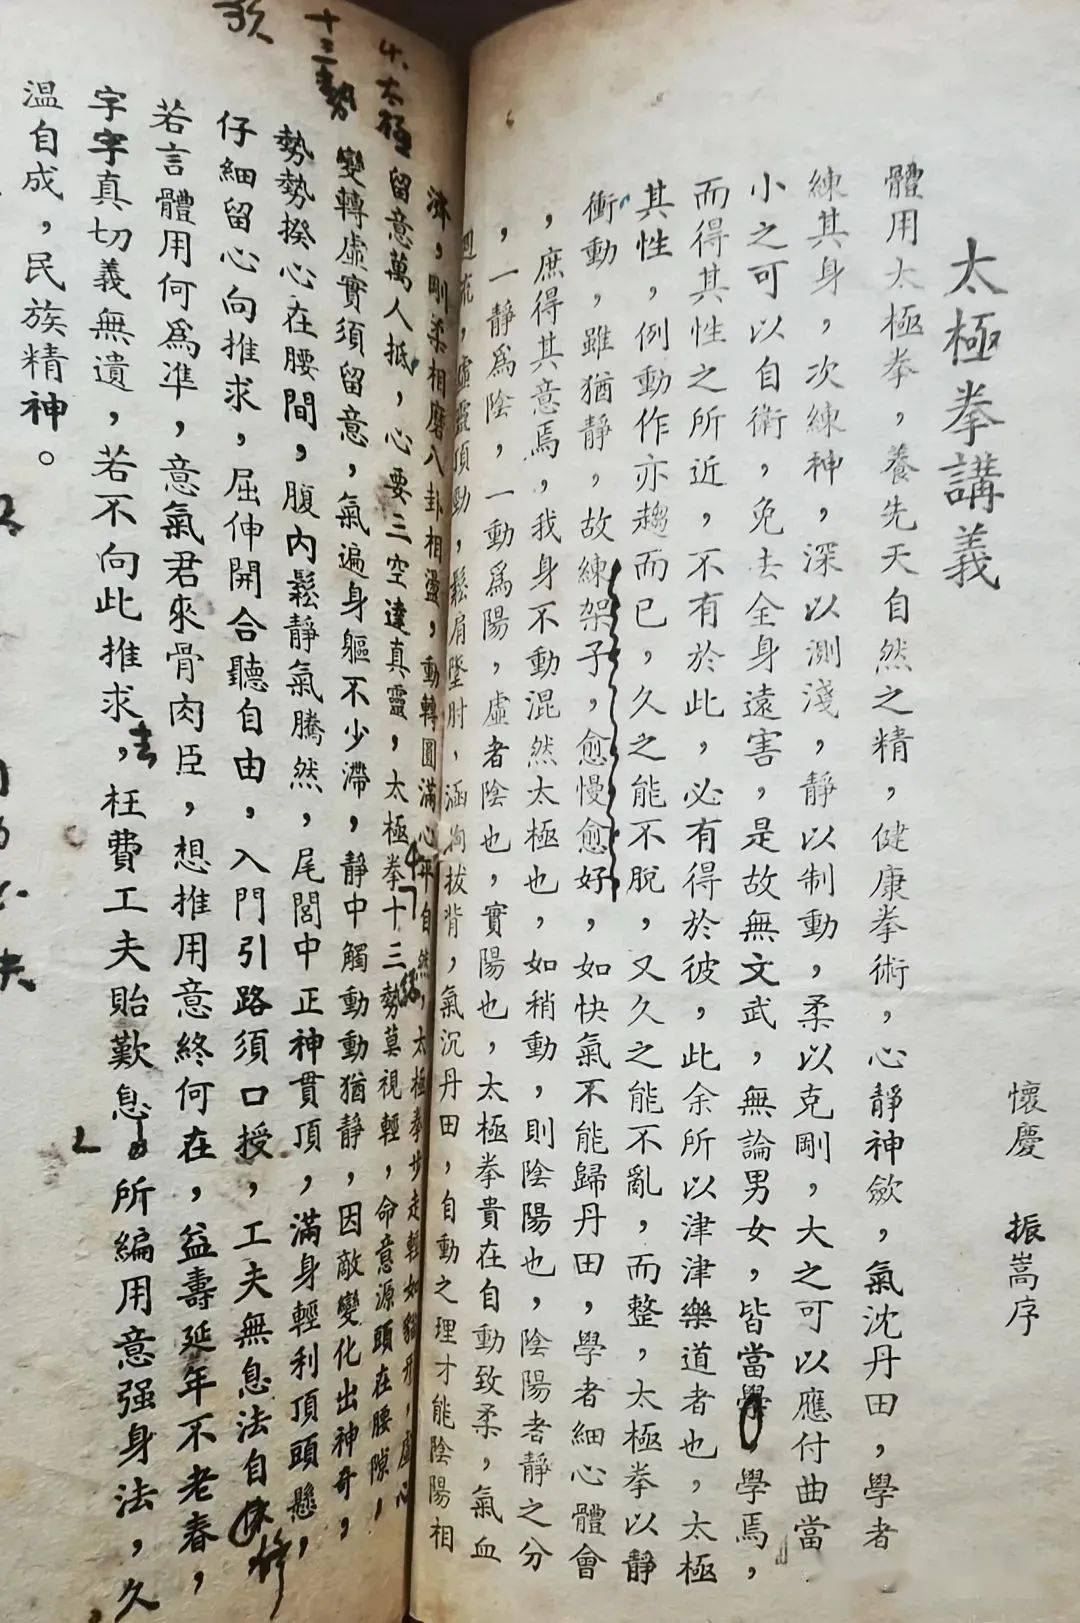 太極拳講義
懷慶 振嵩序
體用太極拳，養先天自然之精，健康拳術，心靜神歛，氣沈丹田，學者
練其身，次練神，深以測淺，靜以制動，柔以克剛，大之可以應付曲當
小之可以自衛，免去全身遠害，是故無文武，無論男女，皆當學，學焉，
而得其性之所近，不有於此，必有得於彼，此余所以津津樂道者也，太極
其性，例動作亦趨而已，久之能不脫，又久之能不亂，而整，太極拳以靜
衝動，雖猶靜，故練架子，愈慢愈好，如快氣不能歸丹田，學者細心體會
，庶得其意焉，我身不動混然太極也，如稍動，則陰陽也，陰陽者靜之分
，一靜爲陰，一動爲陽，虛者陰也，實陽也，太極拳貴在自動致柔，氣血
週流，虛靈頂勁，鬆肩墜肘，涵胸拔背，氣沉丹田，自動之理才能陰陽相
濟，剛柔相磨八卦相盪，動轉圓滿心平自然，太極拳步走轉如貓形，虛心
留意萬人抵，心要三空達真靈，太極拳十三勢莫視輕，命意源頭在腰隙，
變轉虛實須留意，氣遍身軀不少滯，靜中觸動動猶靜，因敵變化出神奇，
勢勢揆心在腰間，腹內鬆靜氣騰然，尾閭中正神貫頂，滿身輕利頂頭懸，
仔細留心向推求，屈伸開合聽自由，入門引路須口授，工夫無息法自修
若言體用何爲準，意氣君來骨肉臣，想推用意終何在，益壽延年不老春，
字字真切義無遺，若不向此推求去，枉費工夫貽歎息，所編用意强身法，久
温自成，民族精神。
太極
十三勢
歌